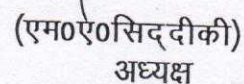 (एम0ए0सिद्दीकी)
अध्यक्ष